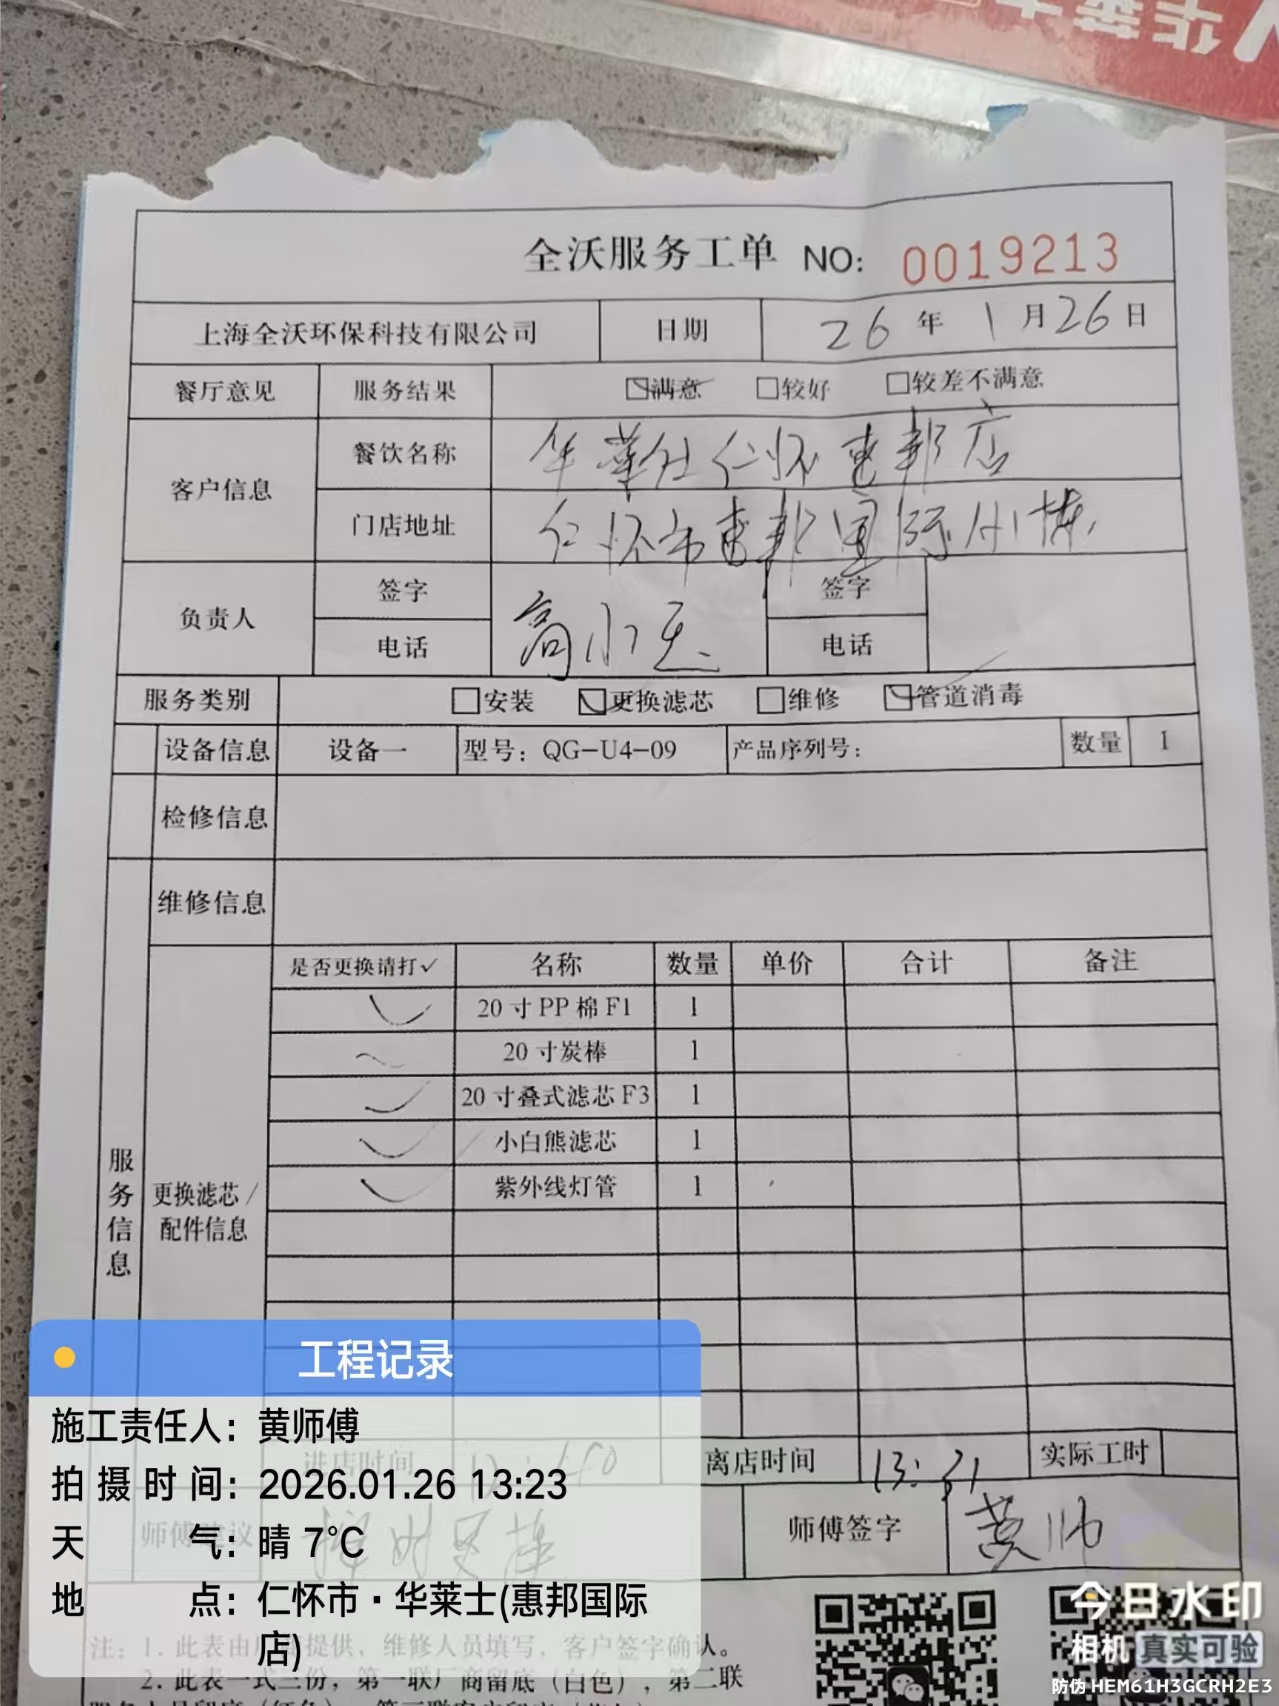 全沃服务工单 NO: 0019213
上海全沃环保科技有限公司 日期 26年1月26日
餐厅意见 服务结果 满意 较好 较差不满意
客户信息 餐饮名称 华莱仕仁怀惠邦店
门店地址 仁怀市惠邦国际
负责人 签字 高小 签字
电话 电话
服务类别 安装 更换滤芯 维修 管道消毒
设备信息 设备一 型号: QG-U4-09 产品序列号: 数量 1
检修信息
维修信息
是否更换请打✓ 名称 数量 单价 合计 备注
✓ 20寸PP棉F1 1
20寸炭棒 1
✓ 20寸叠式滤芯F3 1
✓ 小白熊滤芯 1
✓ 紫外线灯管 1
服务信息
更换滤芯/配件信息
进店时间 离店时间 13:31 实际工时
师傅建议 师傅签字 黄师
注: 1. 此表由厂商提供, 维修人员填写, 客户签字确认。
2. 此表一式三份, 第一联厂商留底(白色), 第二联
工程记录
施工责任人: 黄师傅
拍摄时间: 2026.01.26 13:23
天气: 晴 7℃
地点: 仁怀市·华莱士(惠邦国际
店)
今日水印
相机 真实可验
防伪 HEM61H3GCRH2E3